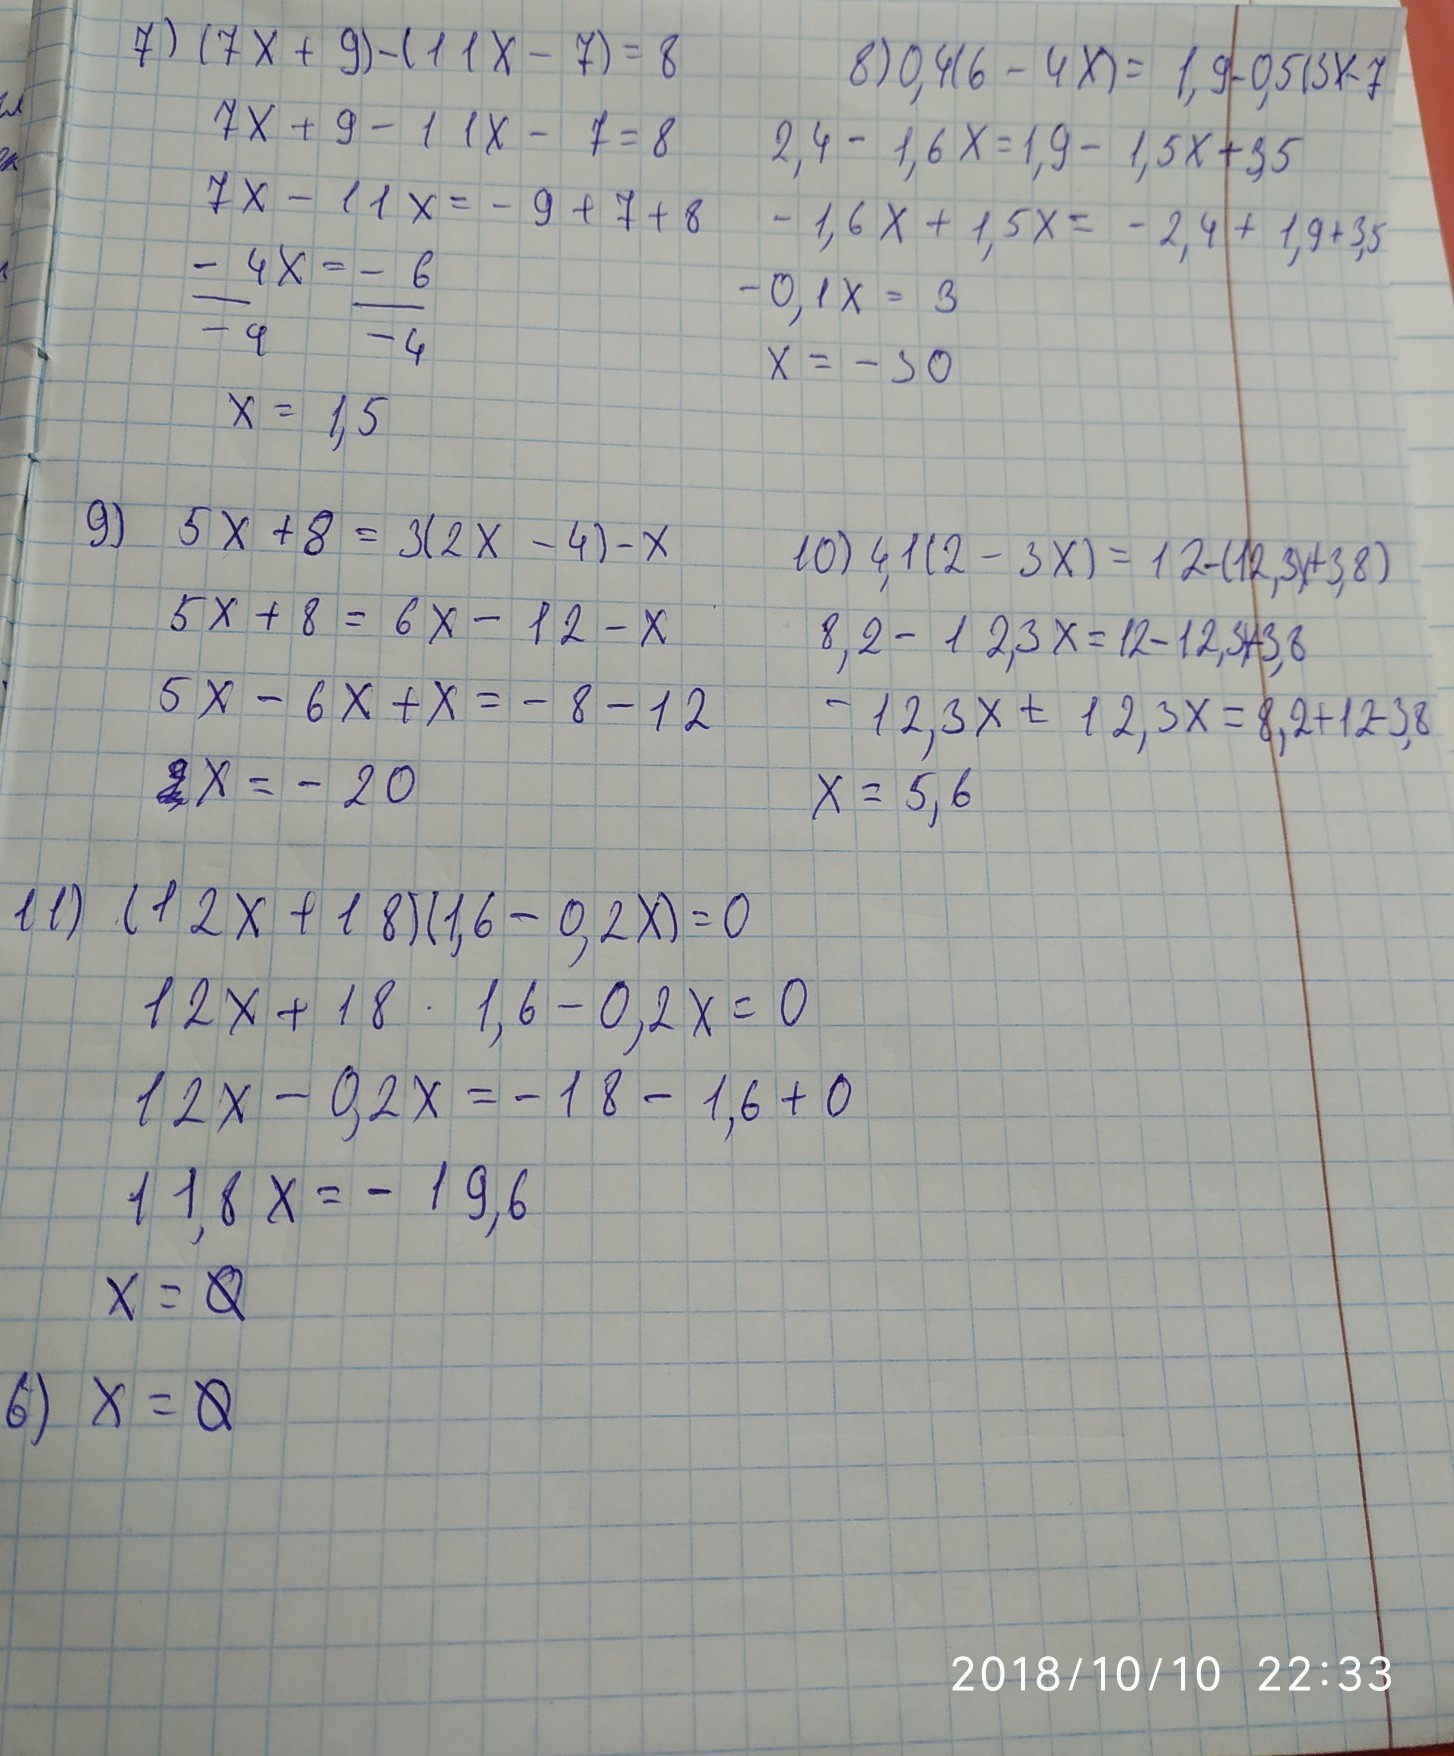 7) (7x + 9)-(11x - 7) = 8
7x + 9 - 11x - 7 = 8
7x - 11x = - 9 + 7 + 8
- 4x = - 6
- 4 - 4
x = 1,5
8) 0,4(6 - 4x) = 1,9-0,5(3x-7
2,4 - 1,6x = 1,9 - 1,5x + 3,5
- 1,6x + 1,5x = - 2,4 + 1,9+3,5
-0,1x = 3
x = - 30
9) 5x + 8 = 3(2x - 4) - x
5x + 8 = 6x - 12 - x
5x - 6x + x = - 8 - 12
2x = - 20
10) 4,1(2 - 3x) = 12-(12,3x+3,8)
8,2 - 12,3x = 12-12,3x+3,8
- 12,3x ± 12,3x = 8,2+12-3,8
x = 5,6
11) (12x + 18)(1,6 - 0,2x) = 0
12x + 18 · 1,6 - 0,2x = 0
12x - 0,2x = - 18 - 1,6 + 0
11,8x = - 19,6
x = Ø
6) x = Ø
2018/10/10 22:33